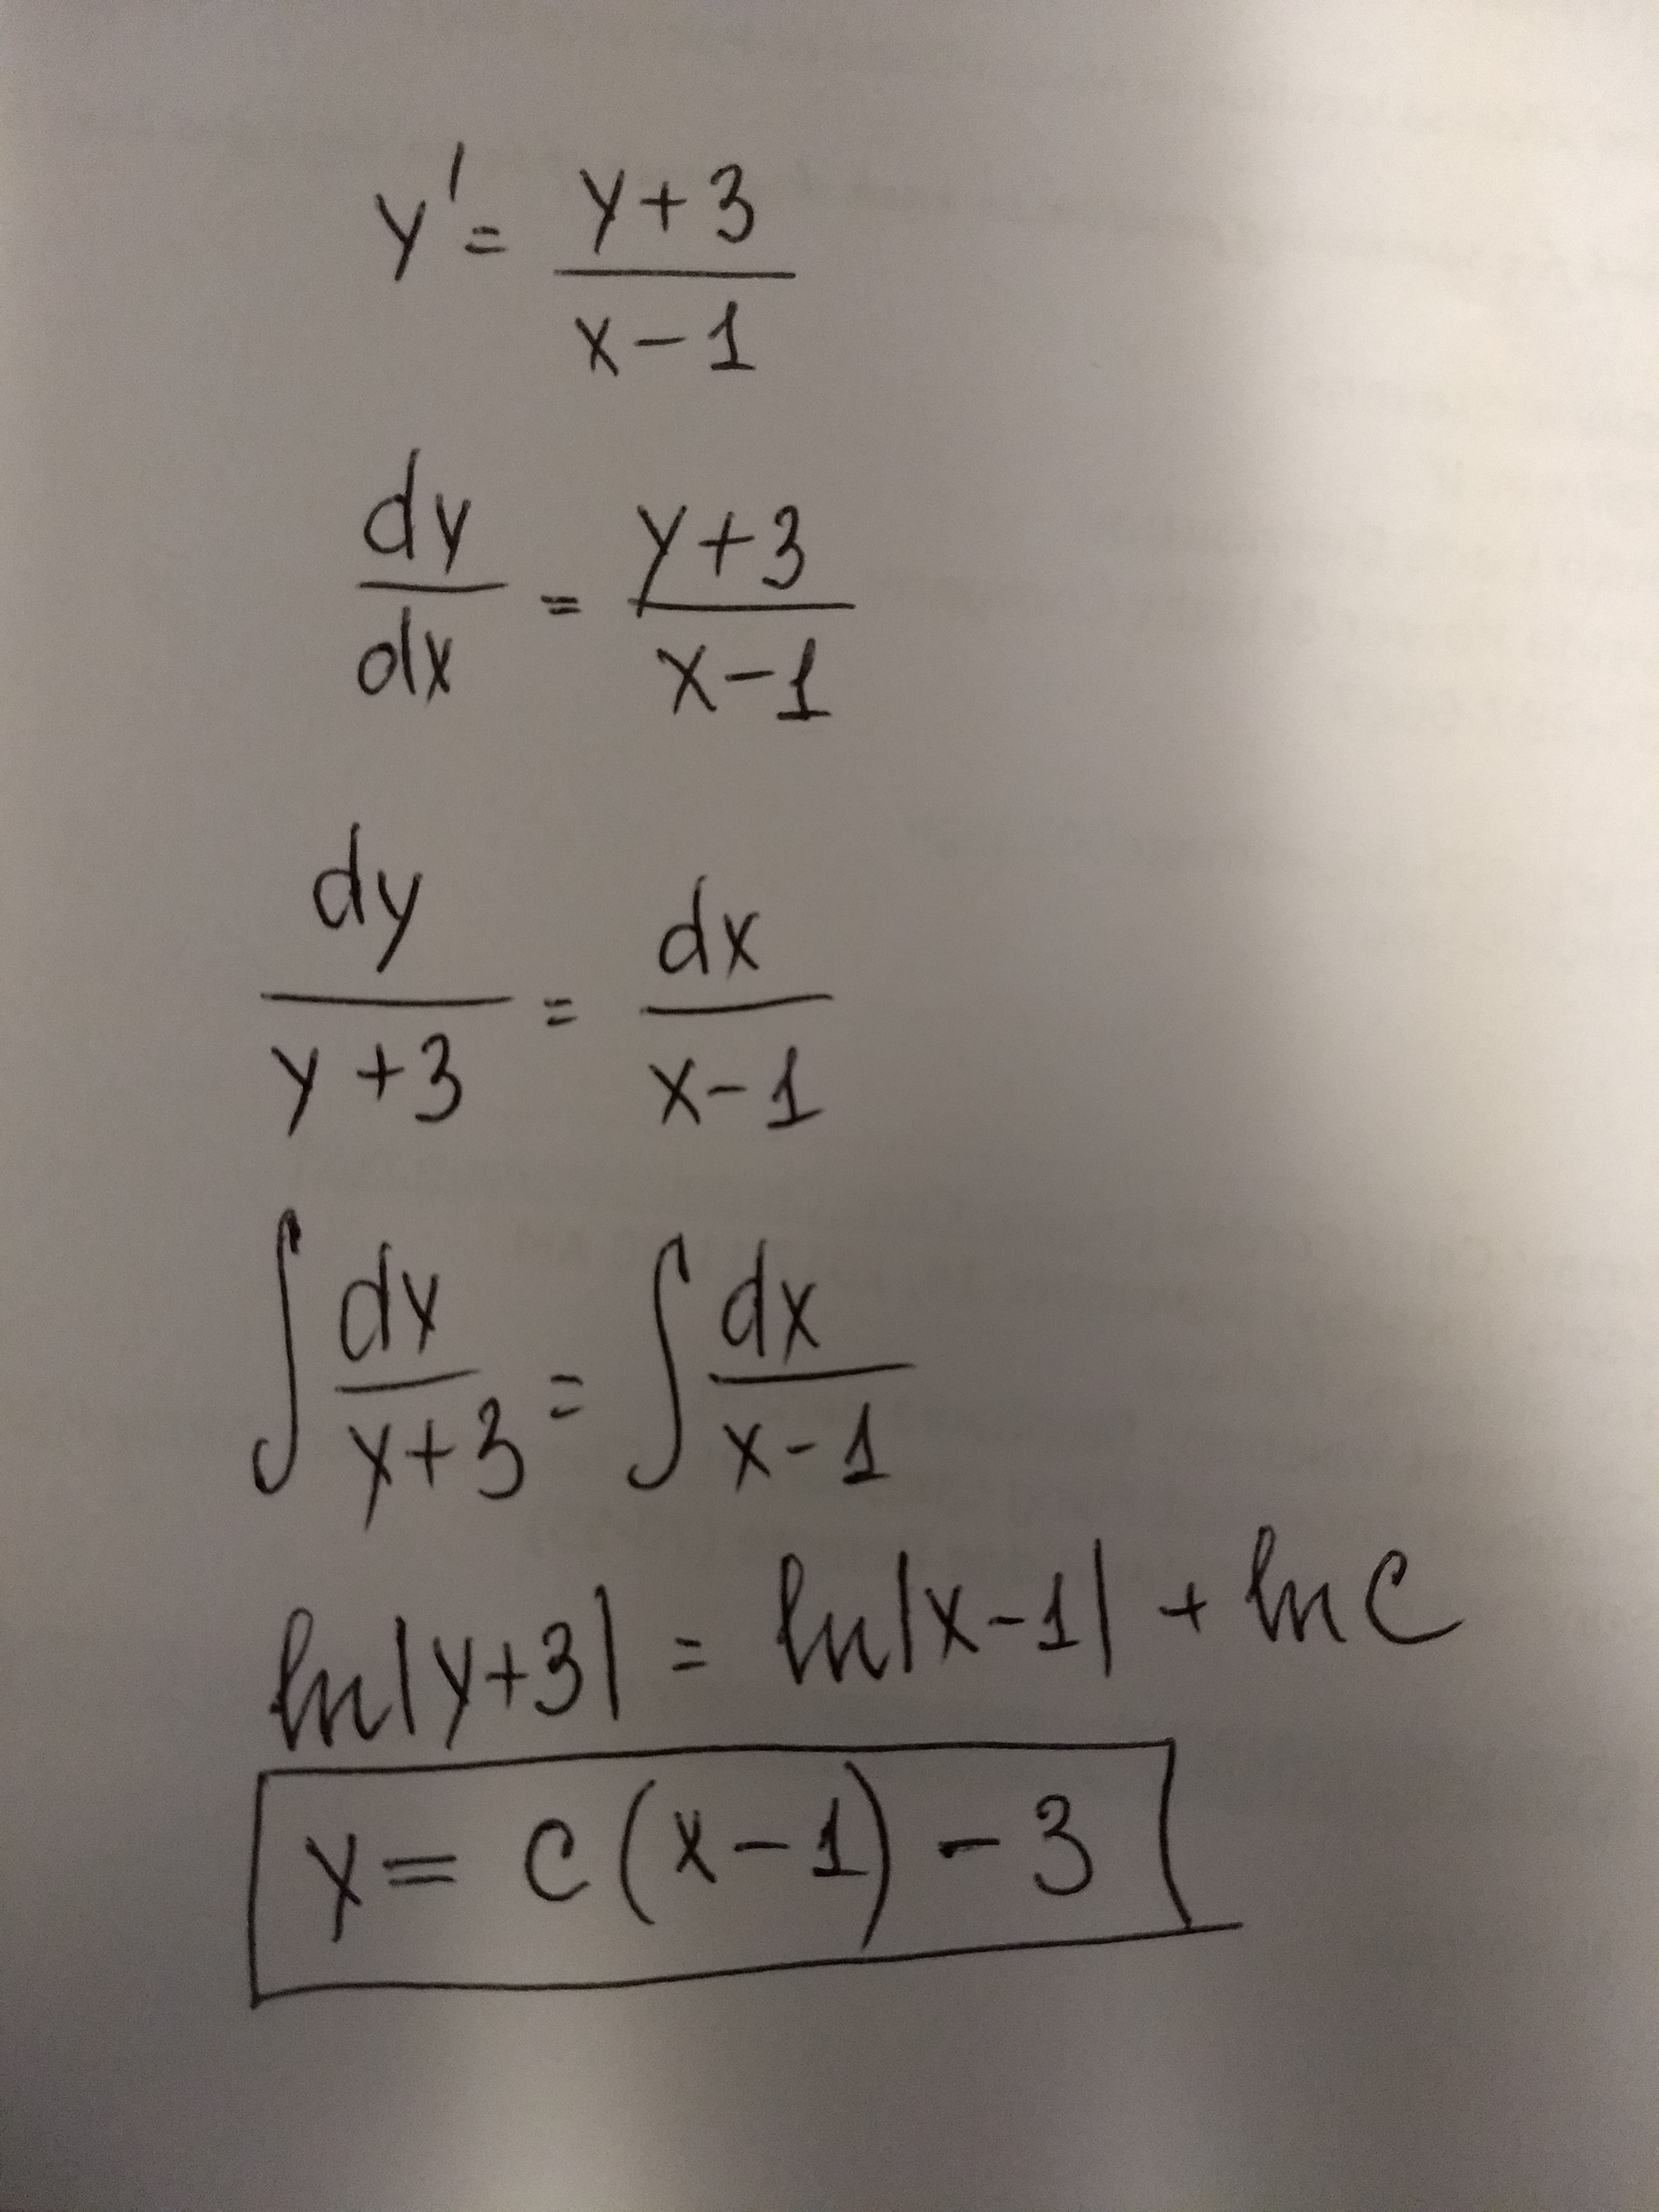 y' = y+3 / x-1
dy / dx = y+3 / x-1
dy / y+3 = dx / x-1
∫ dy / y+3 = ∫ dx / x-1
ln|y+3| = ln|x-1| + ln C
y = C(x-1) - 3